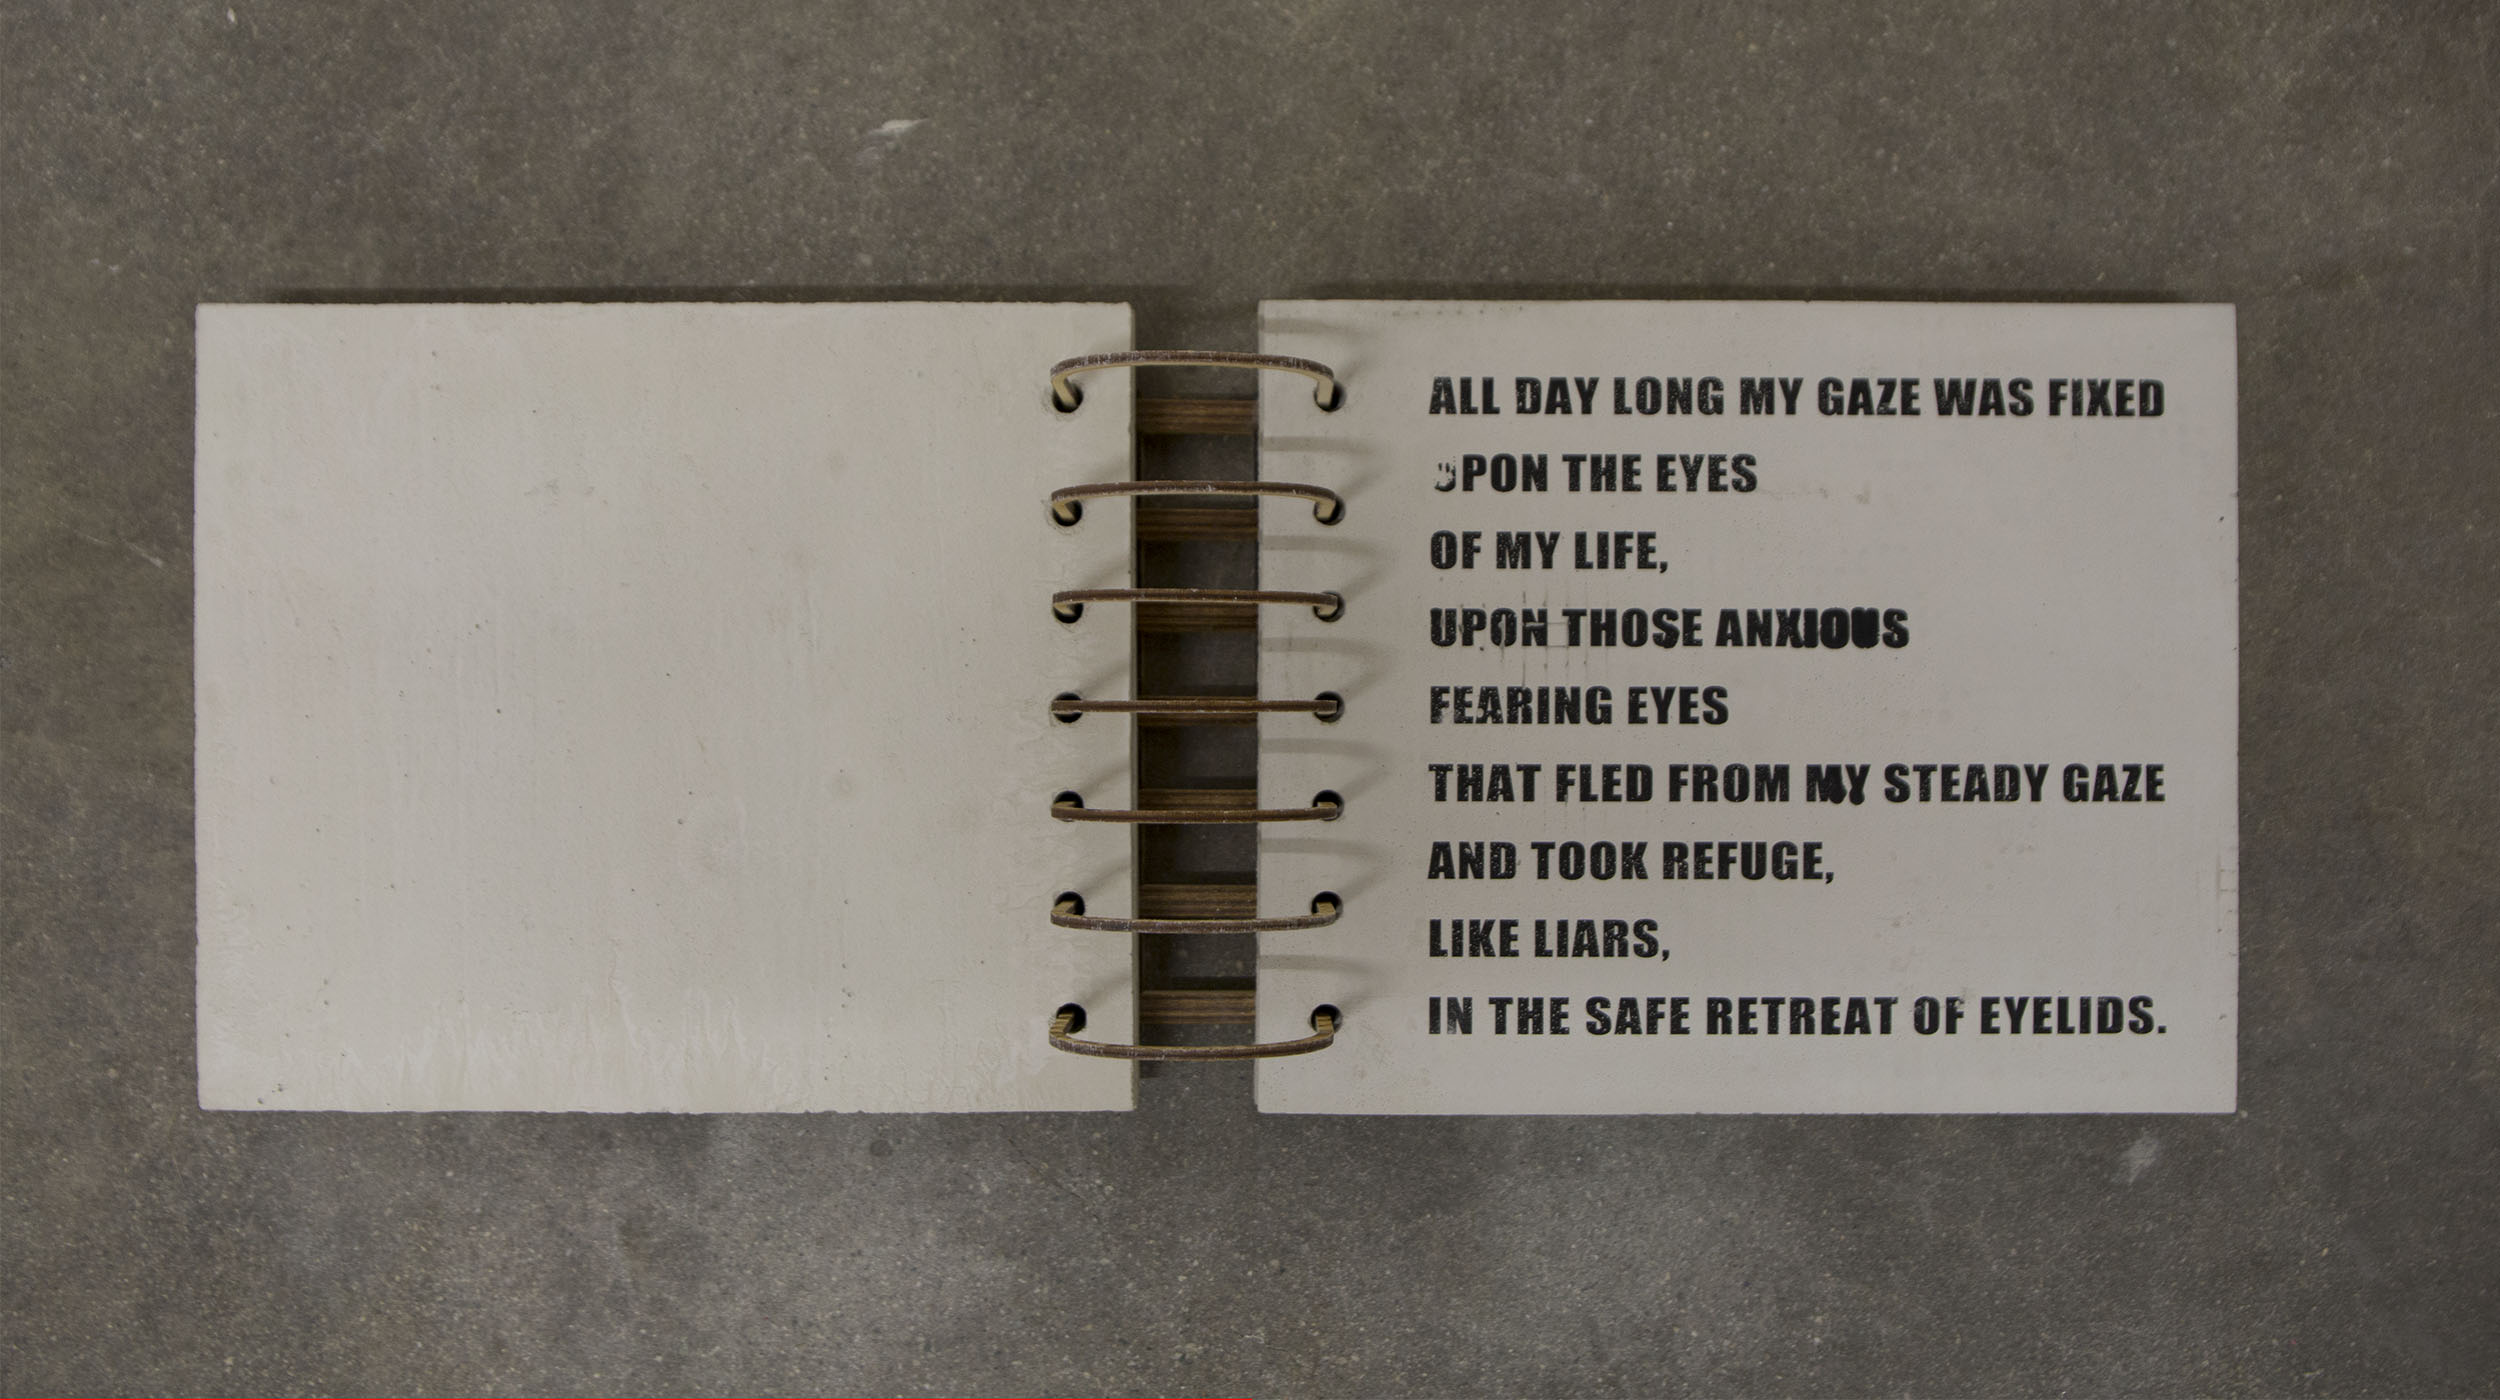 ALL DAY LONG MY GAZE WAS FIXED
UPON THE EYES
OF MY LIFE,
UPON THOSE ANXIOUS
FEARING EYES
THAT FLED FROM MY STEADY GAZE
AND TOOK REFUGE,
LIKE LIARS,
IN THE SAFE RETREAT OF EYELIDS.